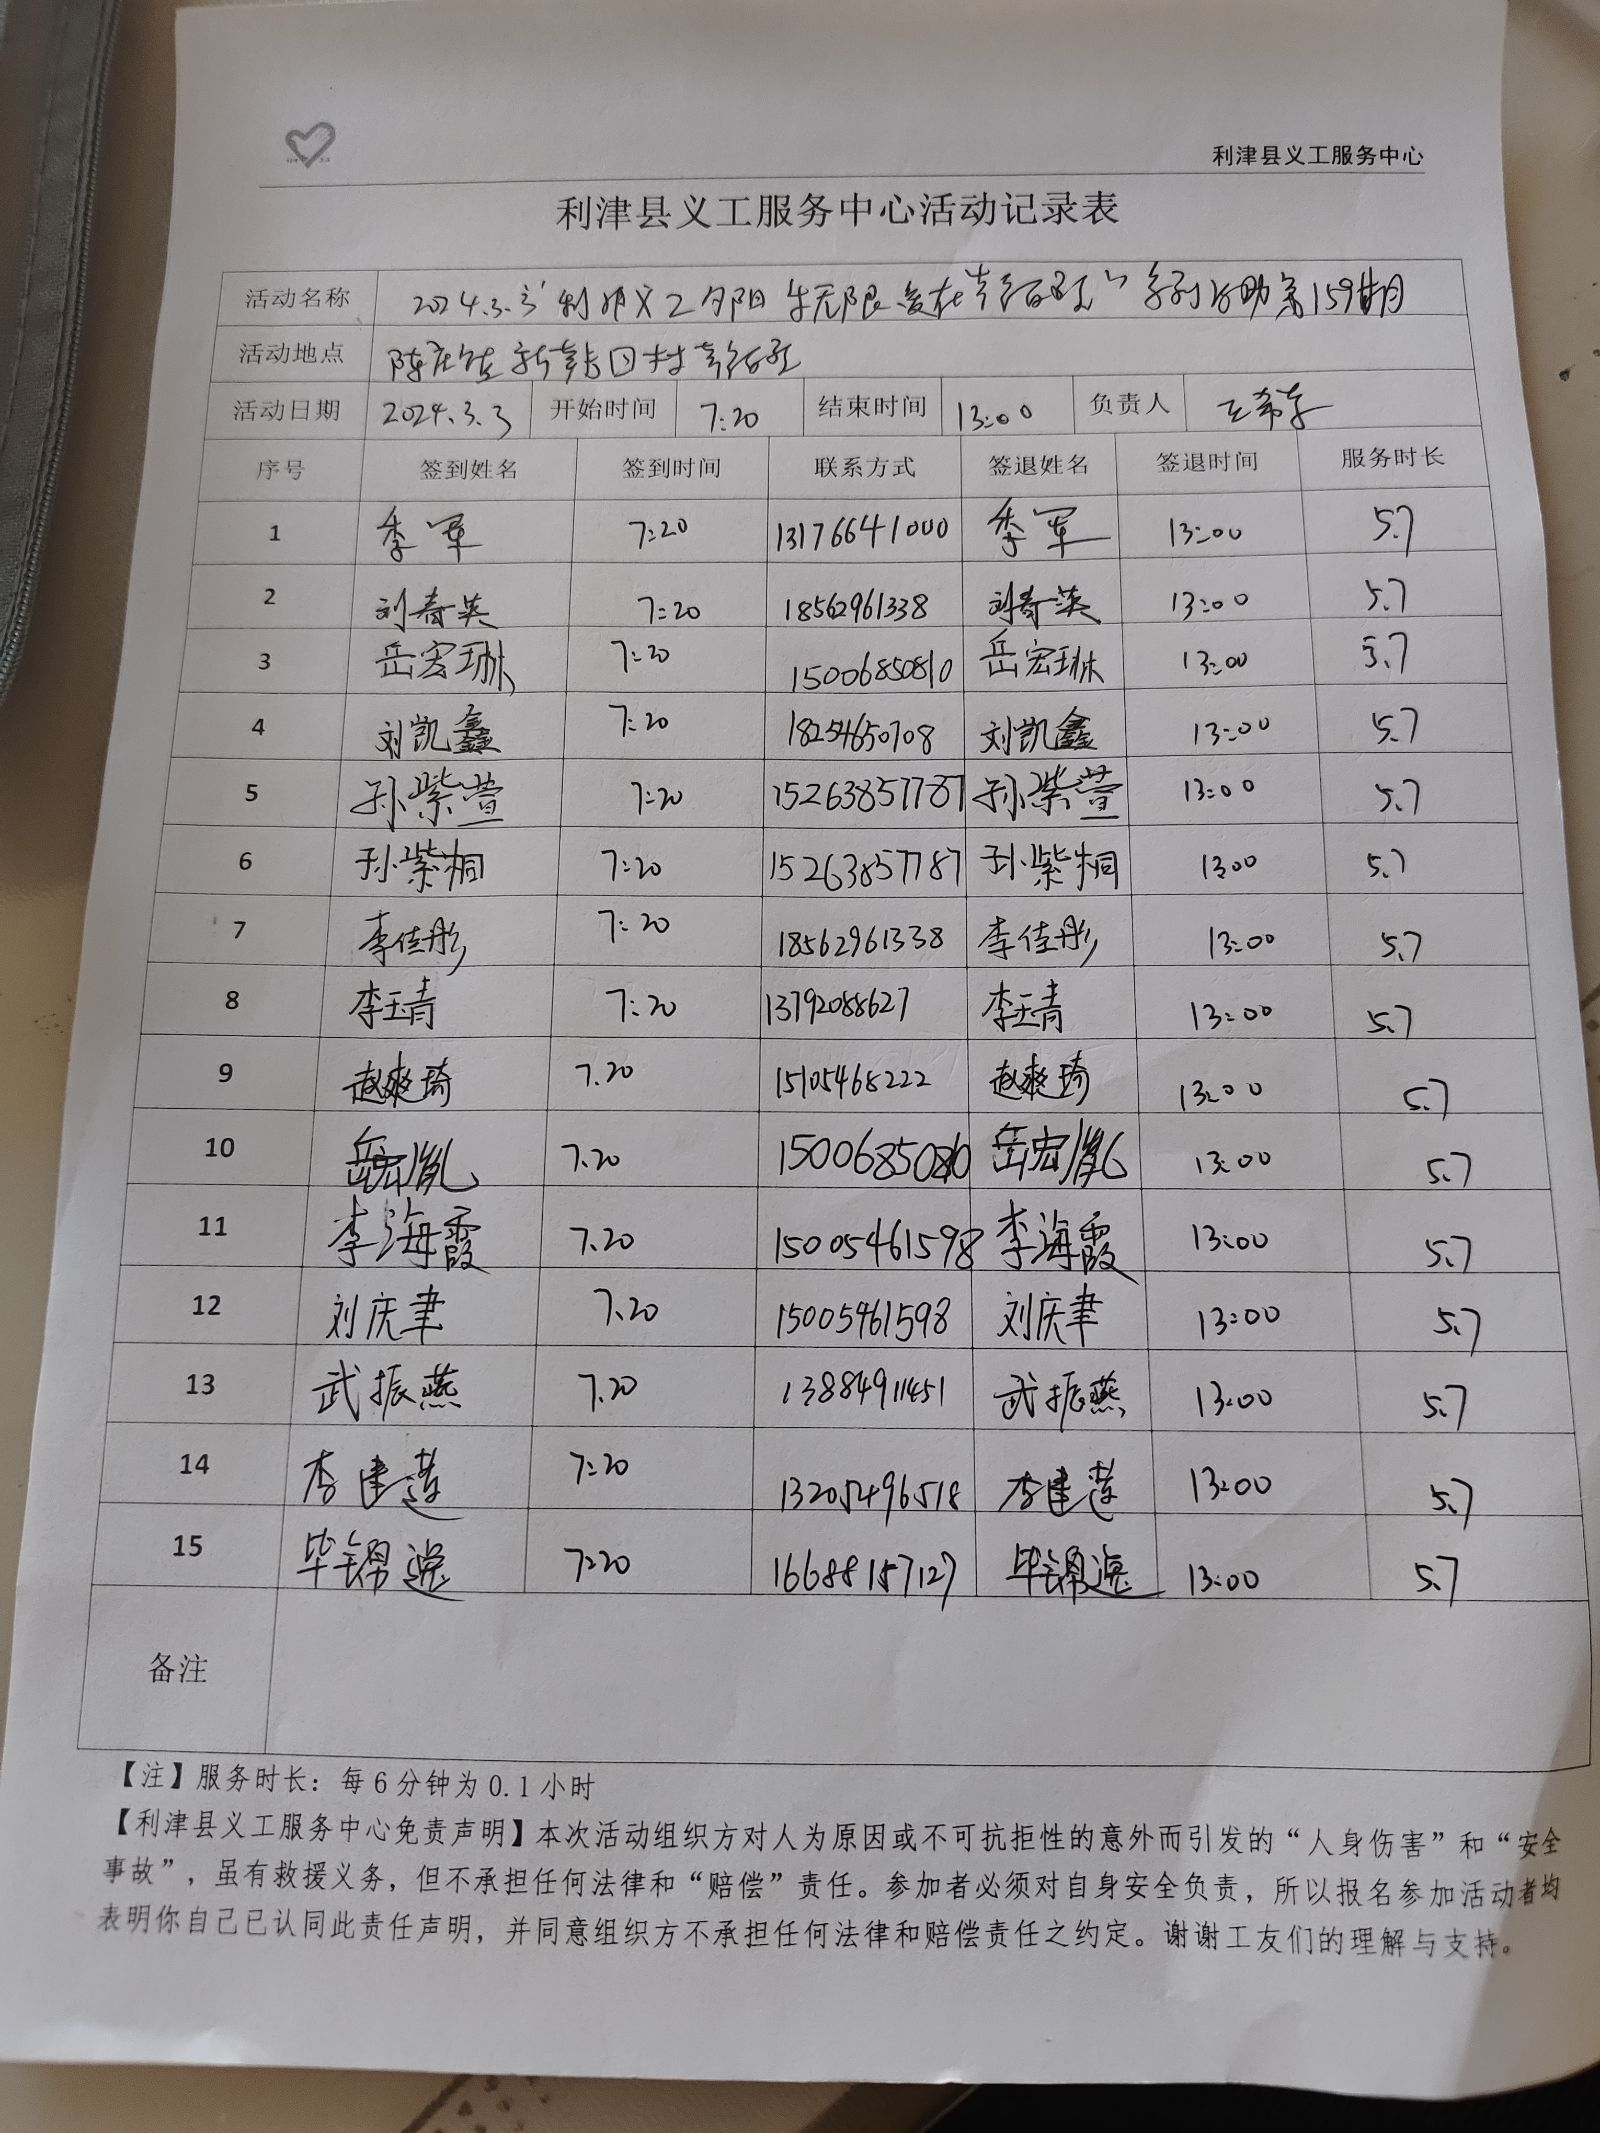 利津县义工服务中心
利津县义工服务中心活动记录表
活动名称 2024.3.3"利津义工夕阳 无限 爱在 " 系列 助 第159
活动地点 陈庄 新韩 村
活动日期 2024.3.3 开始时间 7:20 结束时间 13:00 负责人 王
序号 签到姓名 签到时间 联系方式 签退姓名 签退时间 服务时长
1 李军 7:20 13176641000 李军 13:00 5.7
2 刘春英 7:20 18562961338 刘春英 13:00 5.7
3 岳宏琳 7:20 15006850810 岳宏琳 13:00 5.7
4 刘凯鑫 7:20 18254650708 刘凯鑫 13:00 5.7
5 孙紫萱 7:20 15263857787 孙紫萱 13:00 5.7
6 孙紫桐 7:20 15263857787 孙紫桐 13:00 5.7
7 李佳彤 7:20 18562961338 李佳彤 13:00 5.7
8 李玉青 7:20 13792088627 李玉青 13:00 5.7
9 赵爽琦 7.20 15105468222 赵爽琦 13:00 5.7
10 岳宏胤 7.20 15006850810 岳宏胤 13:00 5.7
11 李海霞 7.20 15005461598 李海霞 13:00 5.7
12 刘庆聿 7.20 15005461598 刘庆聿 13:00 5.7
13 武振燕 7.20 13884911451 武振燕 13:00 5.7
14 李建莲 7:20 13205496518 李建莲 13:00 5.7
15 毕锦逸 7:20 16688157127 毕锦逸 13:00 5.7
备注
【注】服务时长：每6分钟为0.1小时
【利津县义工服务中心免责声明】本次活动组织方对人为原因或不可抗拒性的意外而引发的“人身伤害”和“安全
事故”，虽有救援义务，但不承担任何法律和“赔偿”责任。参加者必须对自身安全负责，所以报名参加活动者均
表明你自己已认同此责任声明，并同意组织方不承担任何法律和赔偿责任之约定。谢谢工友们的理解与支持。